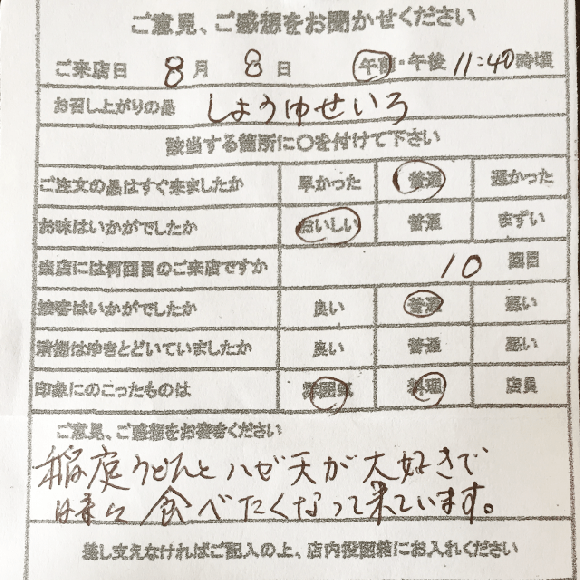 ご意見、ご感想をお聞かせください
ご来店日 8月 8日 午前・午後 11:40時頃
お召し上がりの品 しょうゆせいろ
該当する箇所に○を付けて下さい
ご注文の品はすぐ来ましたか 早かった 普通 遅かった
お味はいかがでしたか おいしい 普通 まずい
当店には何回目のご来店ですか 10 回目
接客はいかがでしたか 良い 普通 悪い
清掃はゆきとどいていましたか 良い 普通 悪い
印象にのこったものは 雰囲気 料理 店員
ご意見、ご感想をお書きください
稲庭うどんとハゼ天が大好きで
食べたくなって来ています。
差し支えなければご記入の上、店内投函箱にお入れください